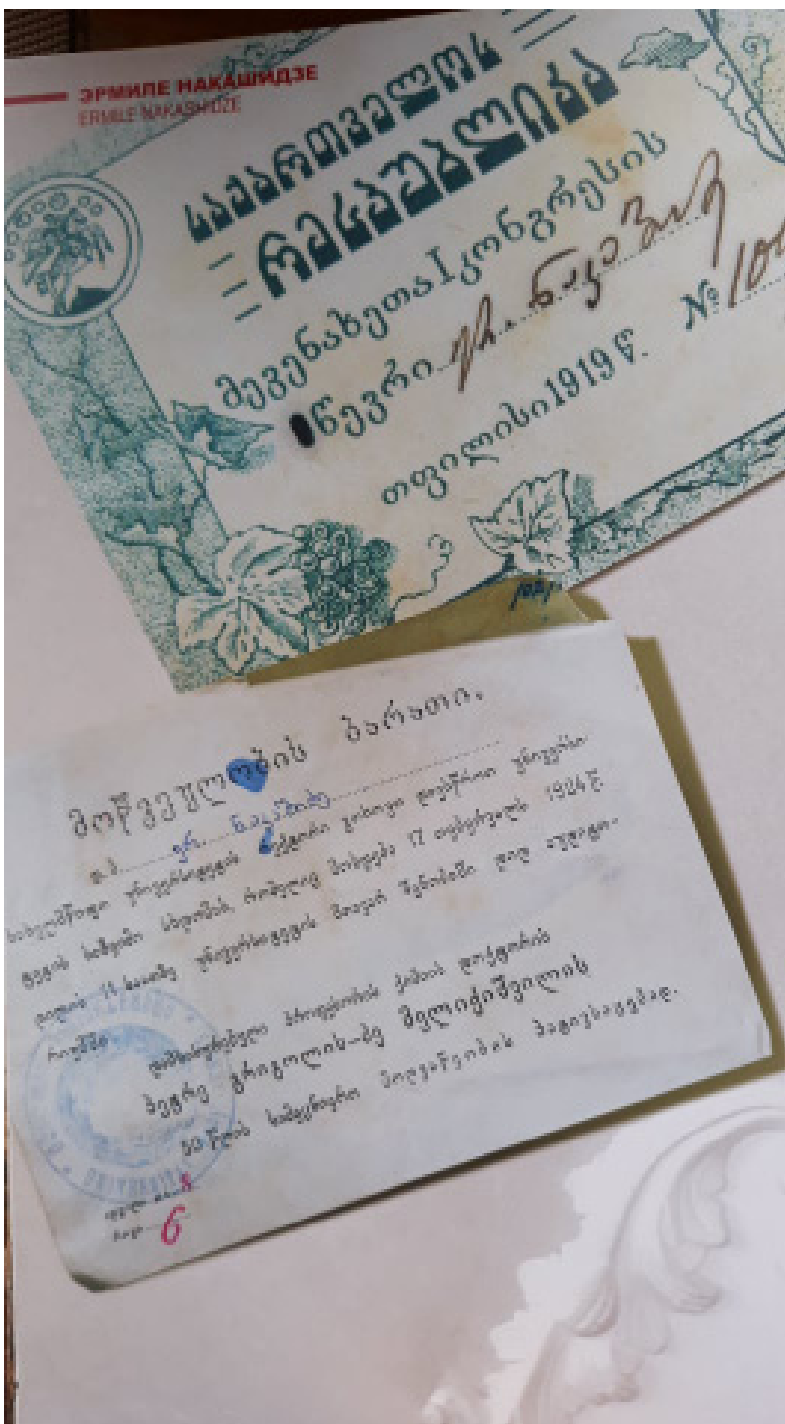 ЭРМИЛЕ НАКАШИДЗЕ
ERMILE NAKASHIDZE
საქართველოს
რესპუბლიკა
მევენახეთა I კონგრესის
წევრი ერ. ნაკაშიძე
თფილისი 1919 წ. № 100
მოწვეულობის ბარათი.
ერ. ნაკაშიძე
სახელმწიფო უნივერსიტეტის რექტორი გთხოვთ დაესწროთ უნივერსი-
ტეტის საზეიმო სხდომას, რომელიც მოხდება 17 თებერვალს 1924 წ.
დილის 11 საათზე უნივერსიტეტის მთავარ შენობაში დიდ აუდიტო-
რიუმში.
დამსახურებული პროფესორის ქიმიის დოქტორის
პეტრე გრიგოლის-ძე მელიქიშვილის
50 წლის სამეცნიერო მოღვაწეობის პატივსაცემად.
6